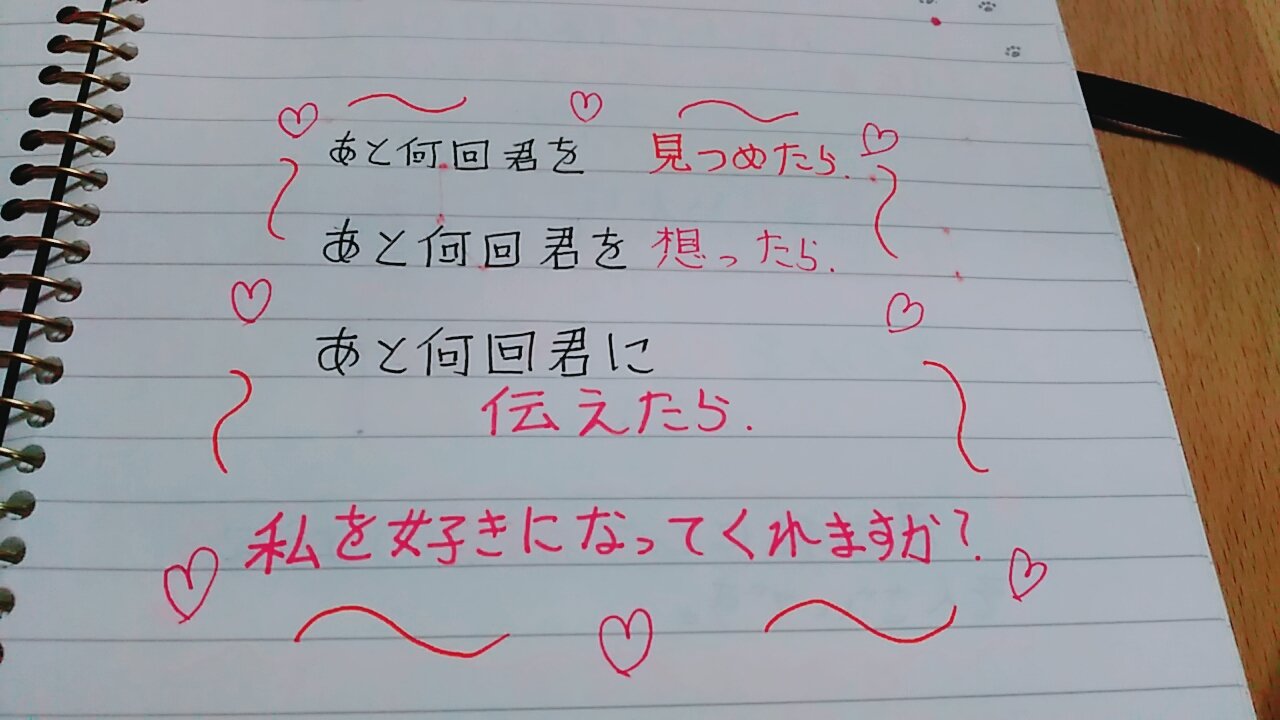 あと何回君を 見つめたら.
あと何回君を 想ったら.
あと何回君に
伝えたら.
私を好きになってくれますか?